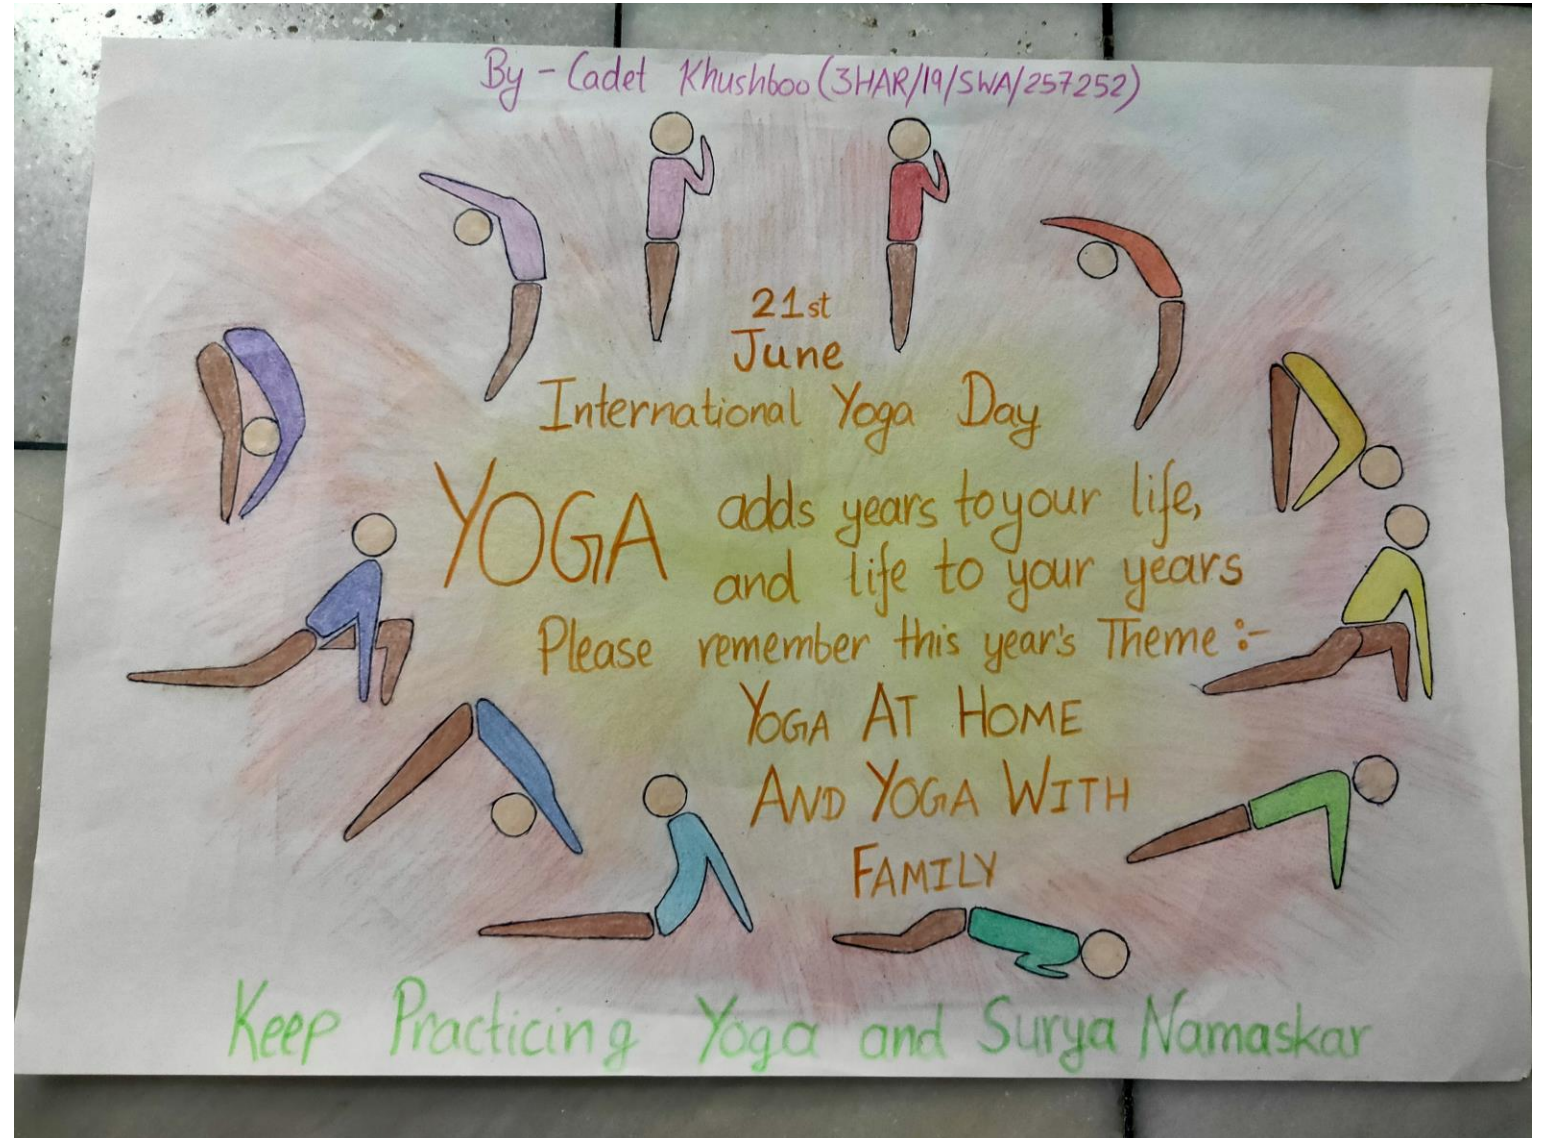 By - Cadet Khushboo (3HAR/19/SWA/257252)
21st
June
International Yoga Day
YOGA adds years to your life,
and life to your years
Please remember this year's Theme :-
YOGA AT HOME
AND YOGA WITH
FAMILY
Keep Practicing Yoga and Surya Namaskar